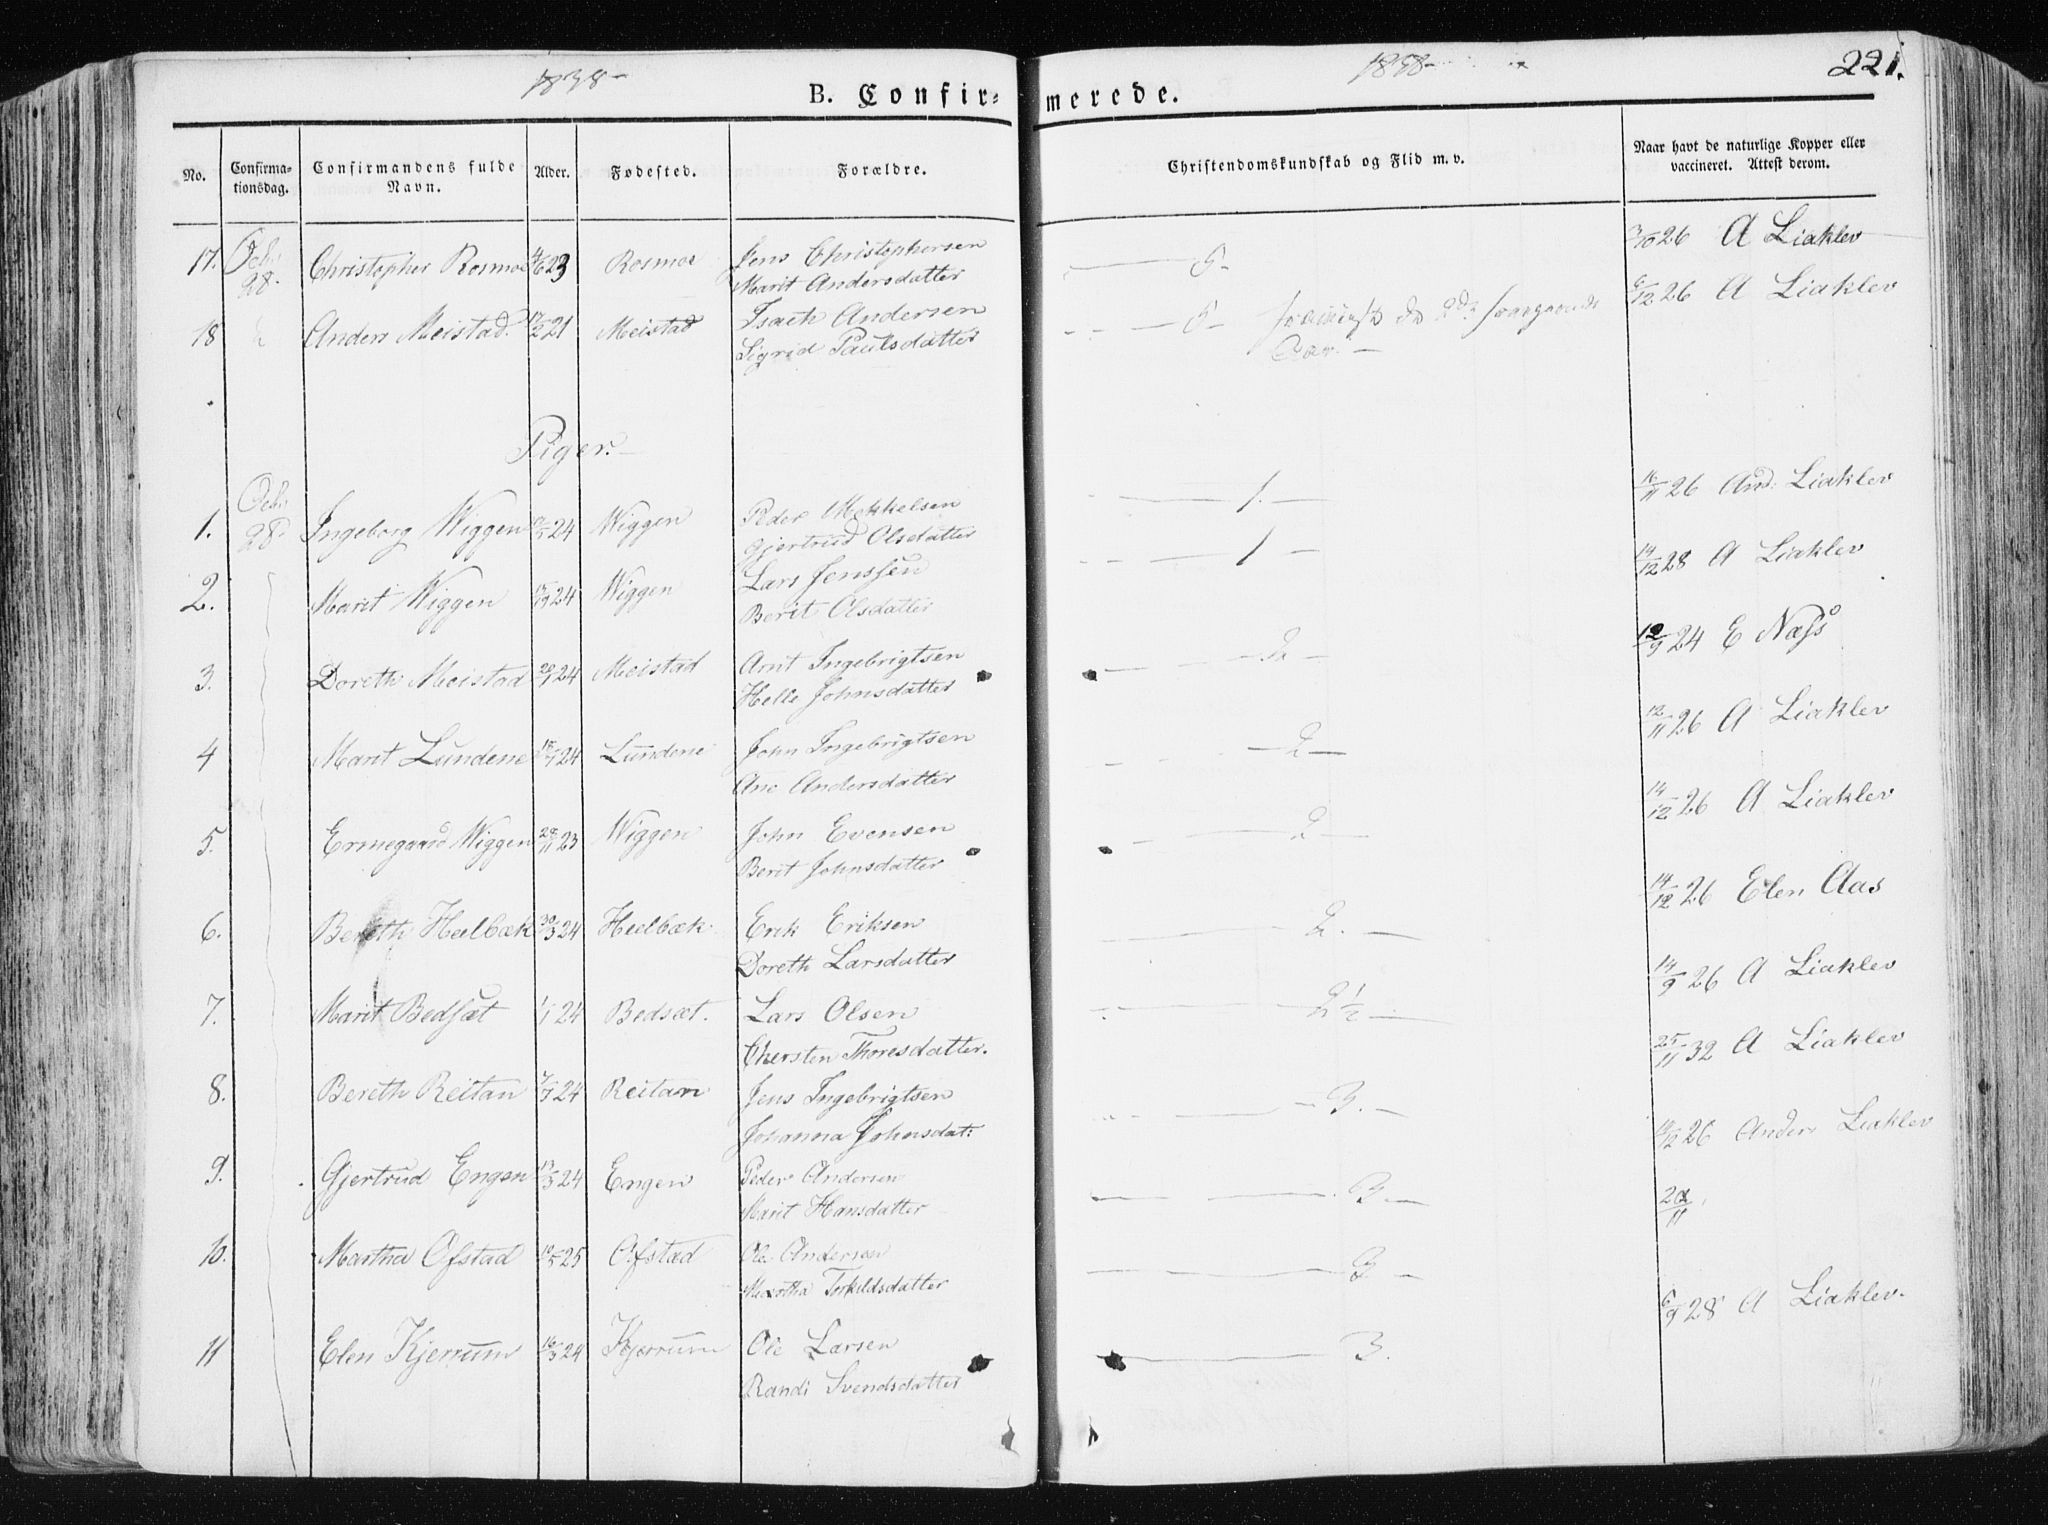 1838-
1838-
221.
B. Confir-
merede.
No.
Confirma-
tionsdag.
Confirmandens fulde
Navn.
Alder.
Fødested.
Forældre.
Christendomskundskab og Flid m. v.
Naar havt de naturlige Kopper eller
vaccineret. Attest derom.
17. Octbr 28. Christopher Rosmoe 4/6 23 Rosmoe Jens Christophersen
Marit Andersdatter
5- 3/10 26 A Liaklev
18 Anders Meistad. 17/2 21 Meistad Isach Andersen
Sigrid Paulsdatter
5- de 2de foregaaende
Aar.-
6/12 26 A Liaklev
Piger.
1. Octbr 28. Ingeborg Wiggen 24 Wiggen Peder Mekkelsen
Gjertrud Olsdatter
1. 16/11 26 And: Liaklev
2. Marit Wiggen 24 Wiggen Lars Jenssen
Berit Olsdatter
1 19/12 28 A Liaklev
3. Doreth Meistad 24 Meistad Arnt Ingebrigtsen
Helle Johnsdatter
2 12/9 24 E Næss
4 Marit Lundene 24 Lundene John Ingebrigtsen
Ane Andersdatter
2 12/11 26 A Liaklev
5. Ermegaard Wiggen 28/11 23 Wiggen John Evensen
Berit Johnsdatter
2 14/12 26 A Liaklev
6. Bereth Heelbæk 30/3 24 Heelbæk Erik Eriksen
Doreth Larsdatter
2. 14/12 26 Elen Aas
7. Marit Bedsæt 1/1 24 Bedsæt. Lars Olsen
Chersten Thoresdatter.
2 1/2 14/9 26 A Liaklev
8. Bereth Reitan 7/7 24 Reitan Jens Ingebrigtsen
Johanna Johnsdat:
3. 25/11 32 A Liaklev
9. Gjertrud Engen 13/3 24 Engen Peder Andersen
Marit Hansdatter
3. 26 Anders Liaklev
10. Martha Ofstad 10/5 25 Ofstad Ole Andersen
Martha Torkildsdatter
3
11 Elen Kjerrum 16/3 24 Kjerrum Ole Larsen
Randi Svendsdatter
3. 6/9 28 A Liaklev.